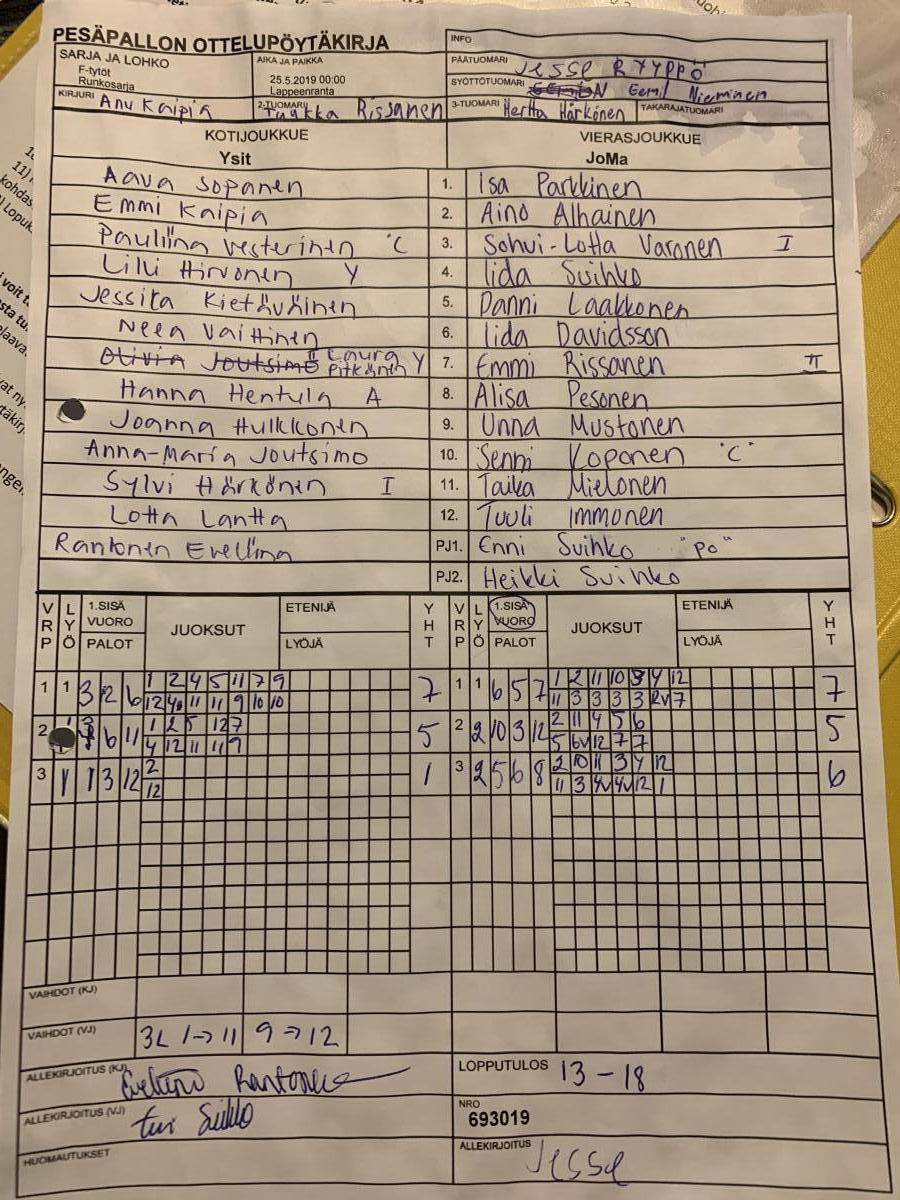 PESÄPALLON OTTELUPÖYTÄKIRJA
INFO
SARJA JA LOHKO
F-tytöt
Runkosarja
AIKA JA PAIKKA
25.5.2019 00:00
Lappeenranta
PÄÄTUOMARI Jesse Ryyppö
SYÖTTÖTUOMARI Eemil Nieminen
KIRJURI Anu Kaipia
2-TUOMARI Tuukka Rissanen
3-TUOMARI Hertta Härkönen
TAKARAJATUOMARI
KOTIJOUKKUE
Ysit
VIERASJOUKKUE
JoMa
Aava Sopanen 1. Isa Parkkinen
Emmi Kaipia 2. Aino Alhainen
Pauliina Vesterinen 'C 3. Sohvi-Lotta Varonen I
Lilli Hirvonen Y 4. Iida Suihko
Jessica Kietäväinen 5. Danni Laakkonen
Neea Vaittinen 6. Iida Davidsson
Olivia Joutsimo Laura Pitkänen Y 7. Emmi Rissanen II
Hanna Hentula A 8. Alisa Pesonen
Joanna Hulkkonen 9. Unna Mustonen
Anna-Maria Joutsimo 10. Senni Koponen "C"
Sylvi Härkönen I 11. Taika Mielonen
Lotta Lantta 12. Tuuli Immonen
Rantonen Eveliina PJ1. Enni Suihko "PO"
PJ2. Heikki Suihko
VRP LYÖ 1.SISÄ VUORO PALOT JUOKSUT ETENIJÄ LYÖJÄ YHT VRP LYÖ 1.SISÄ VUORO PALOT JUOKSUT ETENIJÄ LYÖJÄ YHT
1 1 3 12 6 1 2 4 5 11 7 9 7 1 1 6 5 7 1 2 11 10 3 4 12 7
11 3 3 3 3 2v 7
2 6 11 1 2 5 12 7 5 2 2 10 3 12 2 11 4 5 6 5
4 12 11 11 9 5 6v 12 7 7
3 1 1 3 12 2 1 3 2 5 6 8 2 10 11 3 4 12 6
12 11 3 4v 4v 12 1
VAIHDOT (KJ)
VAIHDOT (VJ) 3L 1→11 9→12
ALLEKIRJOITUS (KJ) Eveliina Rantonen
LOPPUTULOS 13 - 18
ALLEKIRJOITUS (VJ) Suihko
NRO
693019
HUOMAUTUKSET
ALLEKIRJOITUS Jesse